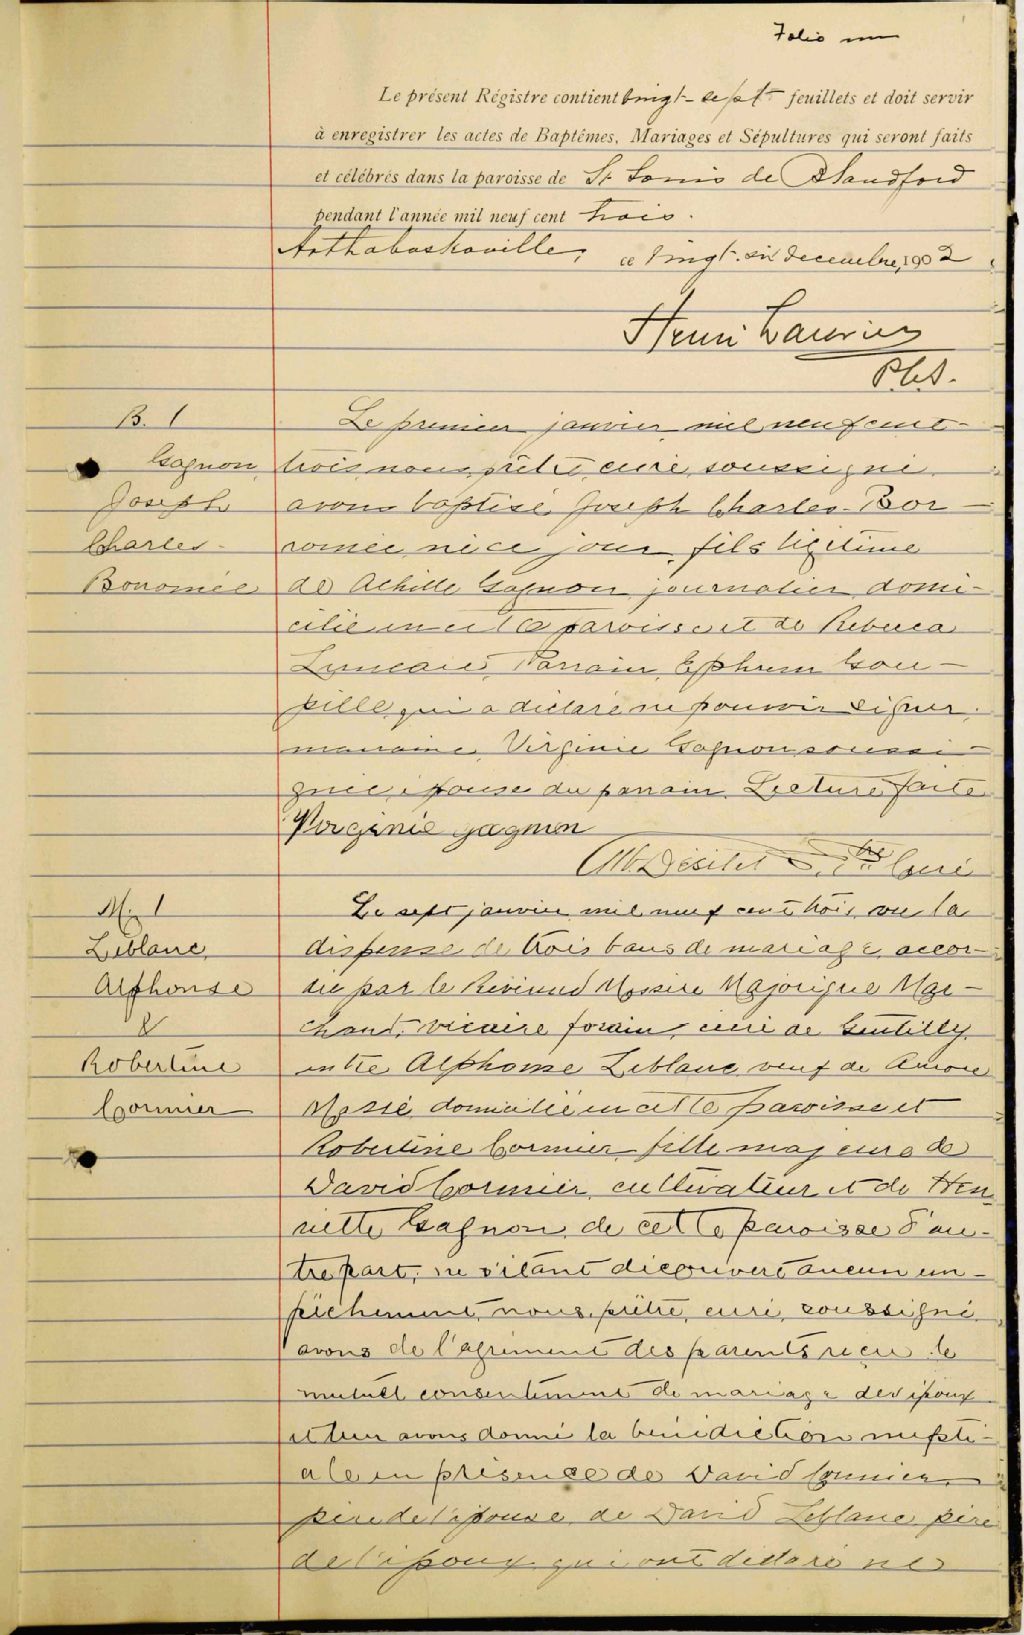 Folio un
Le présent Régistre contient vingt-sept feuillets et doit servir
à enregistrer les actes de Baptêmes, Mariages et Sépultures qui seront faits
et célébrés dans la paroisse de St Louis de Blandford
pendant l'année mil neuf cent trois.
Arthabaskaville, ce vingt-six decembre, 1902
Henri Laurier
P.C.S.
B. 1
Gagnon,
Joseph
Charles-
Boromée
Le premier janvier mil neuf cent-
trois, nous, prêtre, curé, soussigné
avons baptisé Joseph Charles-Bor-
romée, né ce jour, fils légitime
de Achille Gagnon, journalier, domi-
cilié en cette paroisse et de Rebecca
Parrain, Ephrem Gou-
pille, qui a déclaré ne pouvoir signer,
marraine, Virginie Gagnon, soussi-
gnée, épouse du parrain. Lecture faite
Virginie gagnon
Désilets Ptre Curé
M. 1
Leblanc,
Alphonse
&
Robertine
Cormier
Le sept janvier, mil neuf cent trois, vu la
dispense de trois bans de mariage accor-
dée par le Révérend Messire Majorique Mar-
chand, vicaire forain, curé de Gentilly,
entre Alphonse Leblanc, veuf de Aurore
Massé, domicilié en cette paroisse et
Robertine Cormier, fille majeure de
David Cormier, cultivateur et de Hen-
riette Gagnon, de cette paroisse d'au-
tre part; ne s'étant découvert aucun em-
pêchement, nous, prêtre, curé, soussigné
avons de l'agrément des parents reçu le
mutuel consentement de mariage des époux
et leur avons donné la bénédiction nupti-
ale en présence de David Cormier,
père de l'épouse, de David Leblanc père
de l'époux qui ont déclaré ne